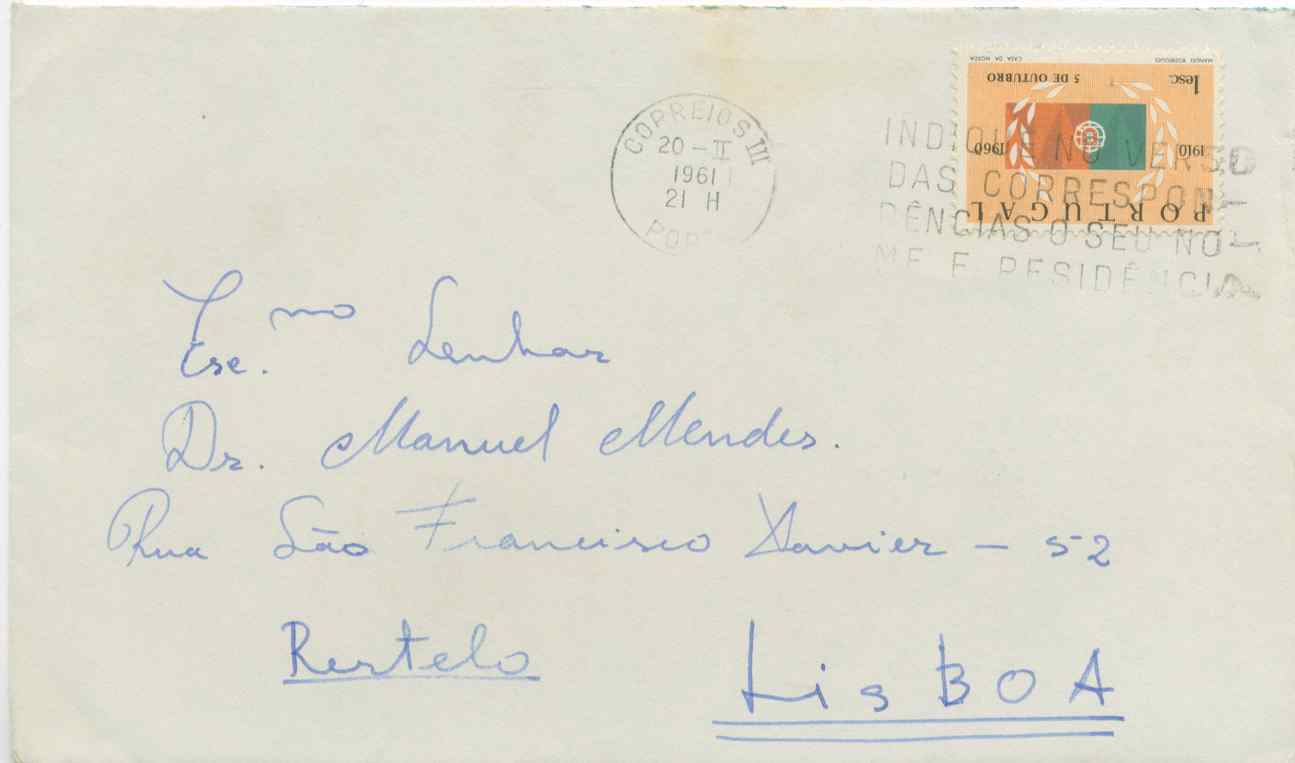 CORREIOS III
20-II
1961
21 H
PORT
INDIQUE NO VERSO
DAS CORRESPON-
DÊNCIAS O SEU NO-
ME E RESIDÊNCIA
PORTUGAL
1910 1960
1esc. 5 DE OUTUBRO
MANUEL RODRIGUES CASA DA MOEDA
Exe.mo Senhor
Dr. Manuel Mendes.
Rua São Francisco Xavier - 52
Restelo LisBOA